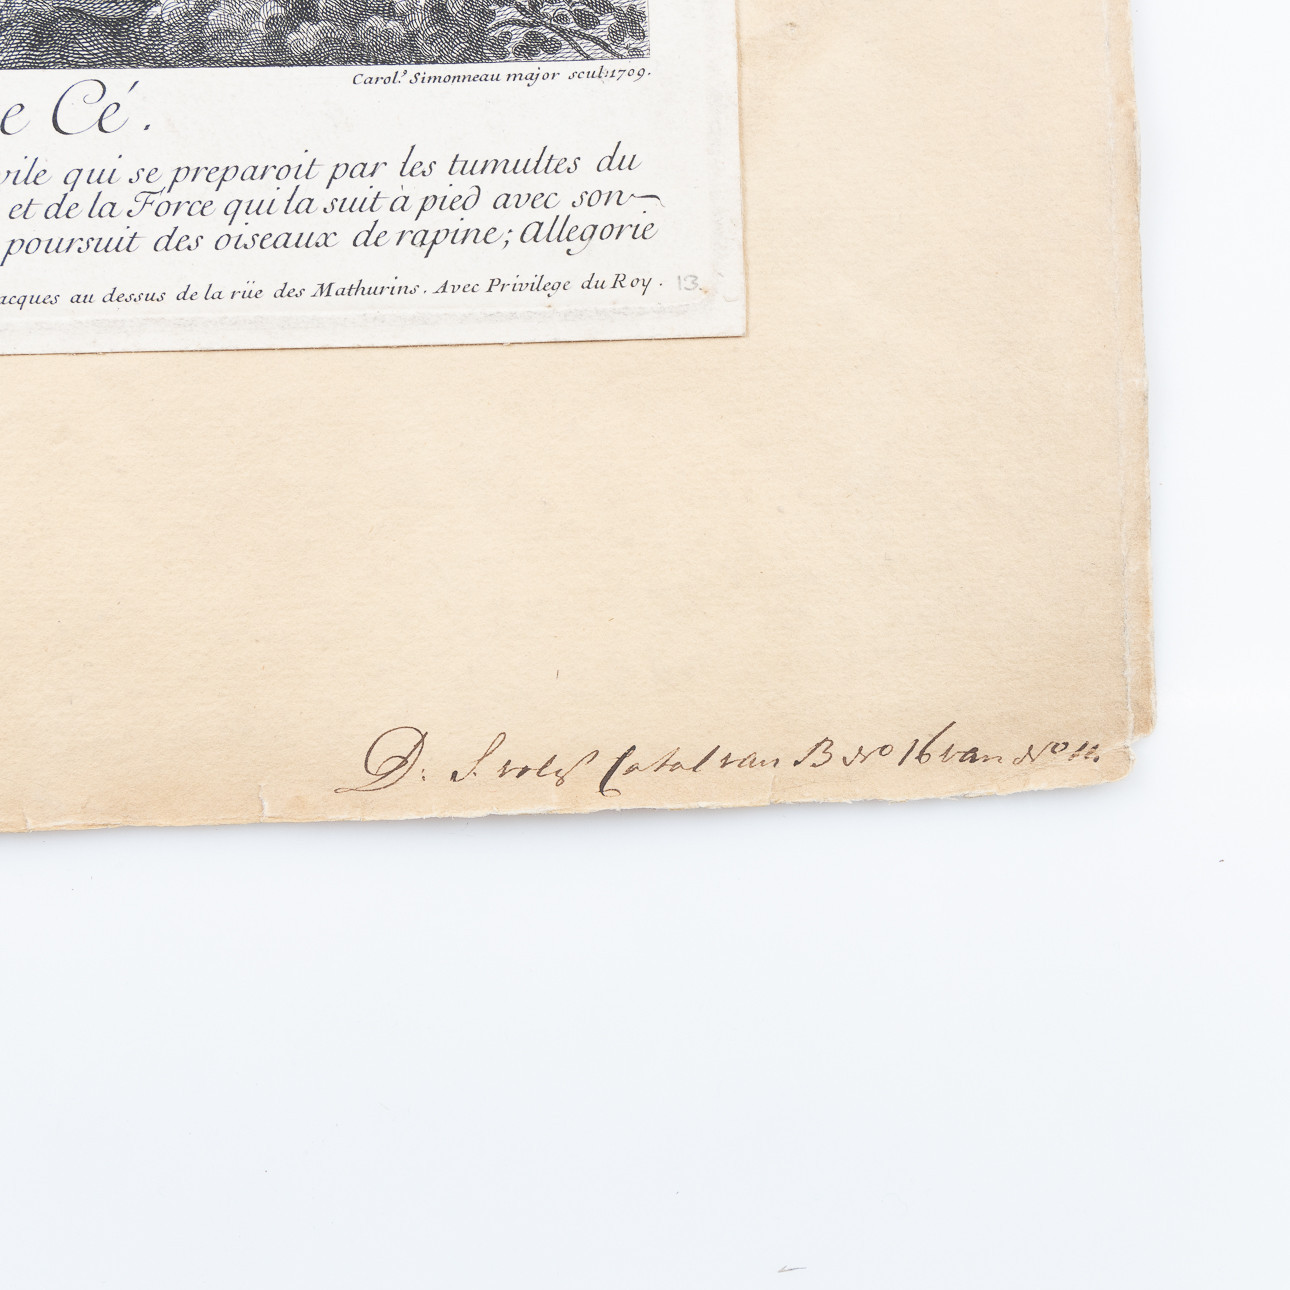 Carol.s Simonneau major sculp. 1709.
e Cé.
vile qui se preparoit par les tumultes du
et de la Force qui la suit à pied avec son
poursuit des oiseaux de rapine; Allegorie
acques au dessus de la rüe des Mathurins. Avec Privilege du Roy. 13
D: S. Catal van B No 16 van No 11.